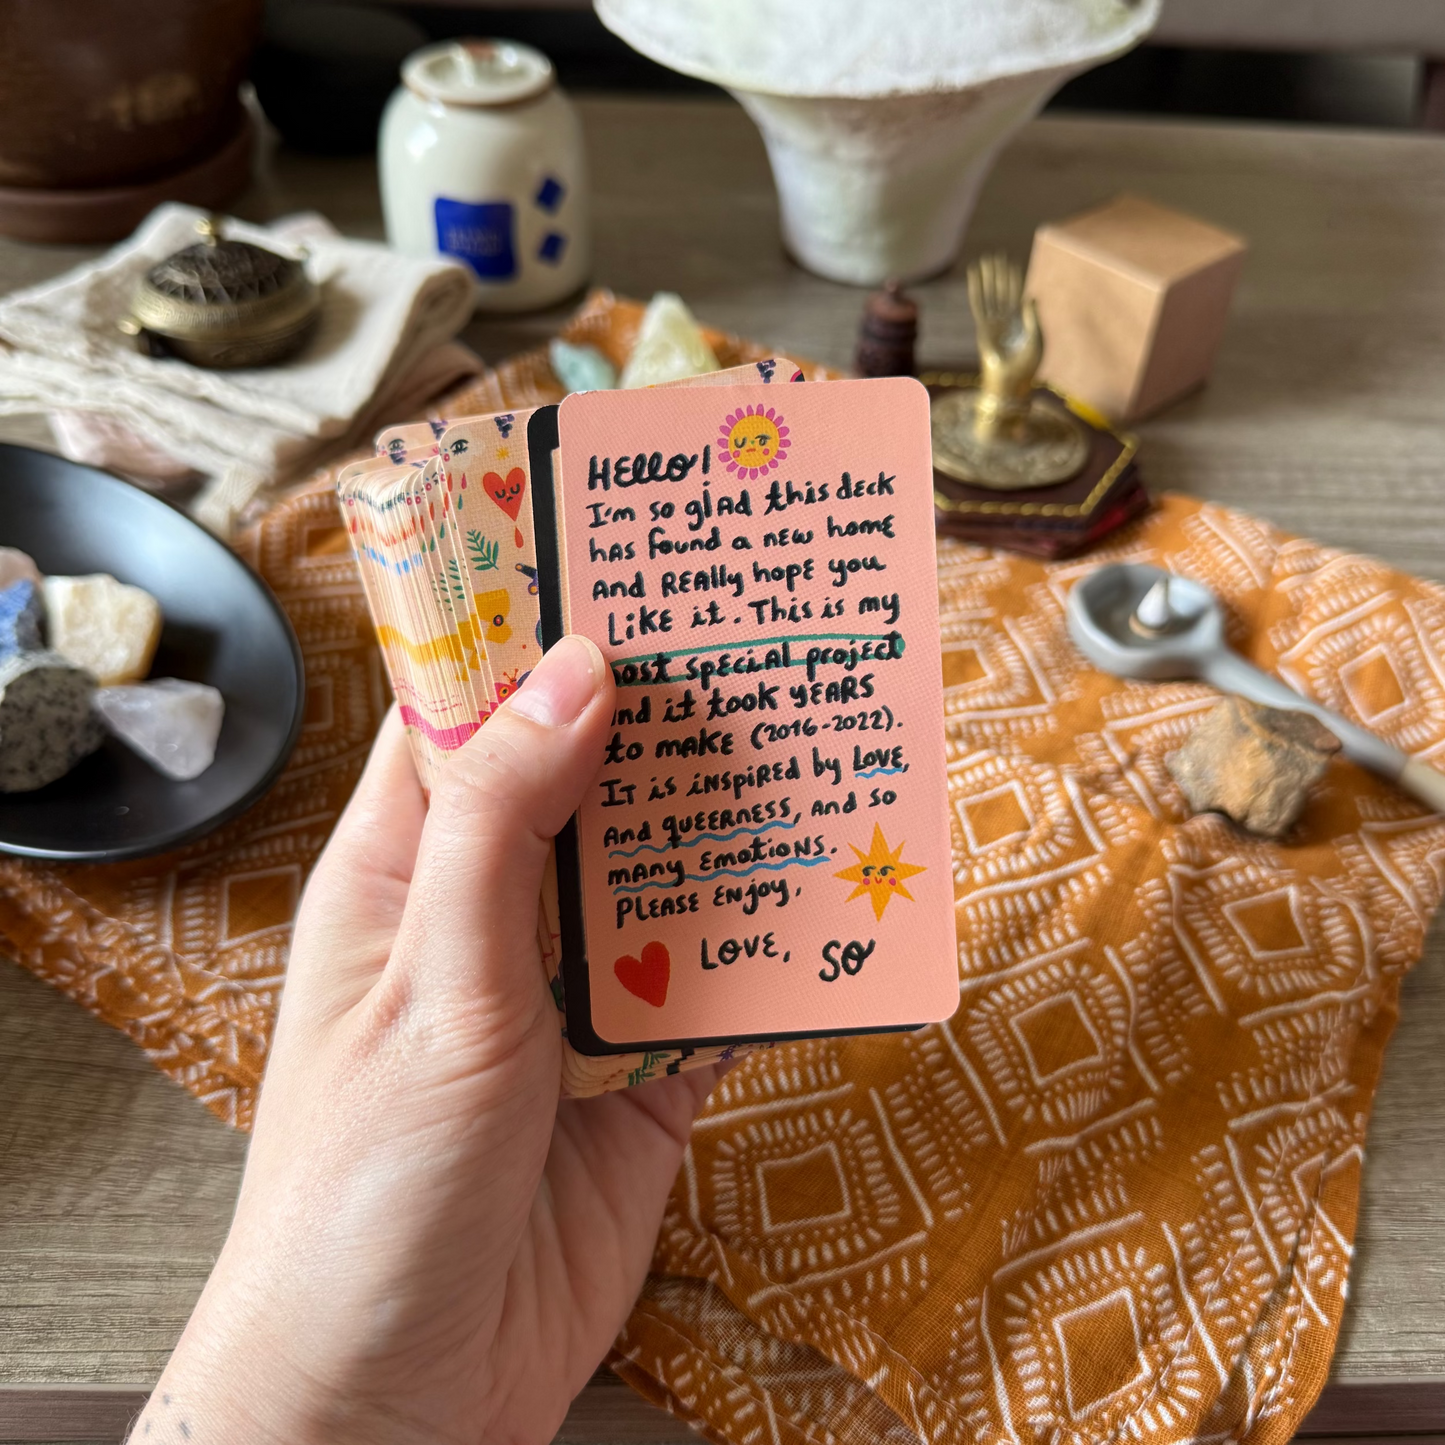 HELLO!
I'm so glad this deck
has found a new home
and REAlly hope you
Like it. This is my
ost special project
nd it took YEARS
to make (2016-2022).
IT is inspired by Love,
And queerness, And so
many Emotions.
PLEASE Enjoy,
LOVE, SO